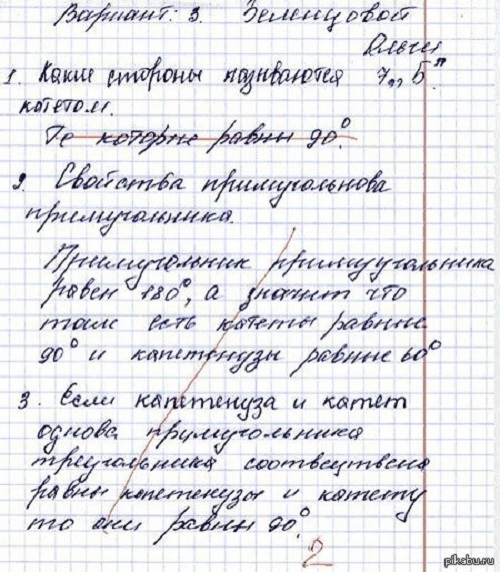 Вариант: 3. Зеленцовой
Ольги
1. Какие стороны называются 7 „Б"
котетом.
Те которые равны 90°.
2. Свойства примугольнова
примуганника.
Примугольник примуугальника
равен 180°, а значит что
там есть катеты равные
90° и капетенузы равные 60°
3. Если капетенуза и катет
однова прумугольника
треугольника соотвецтвена
равны капетенузы и катету
то они равны 90°.
2
pikabu.ru